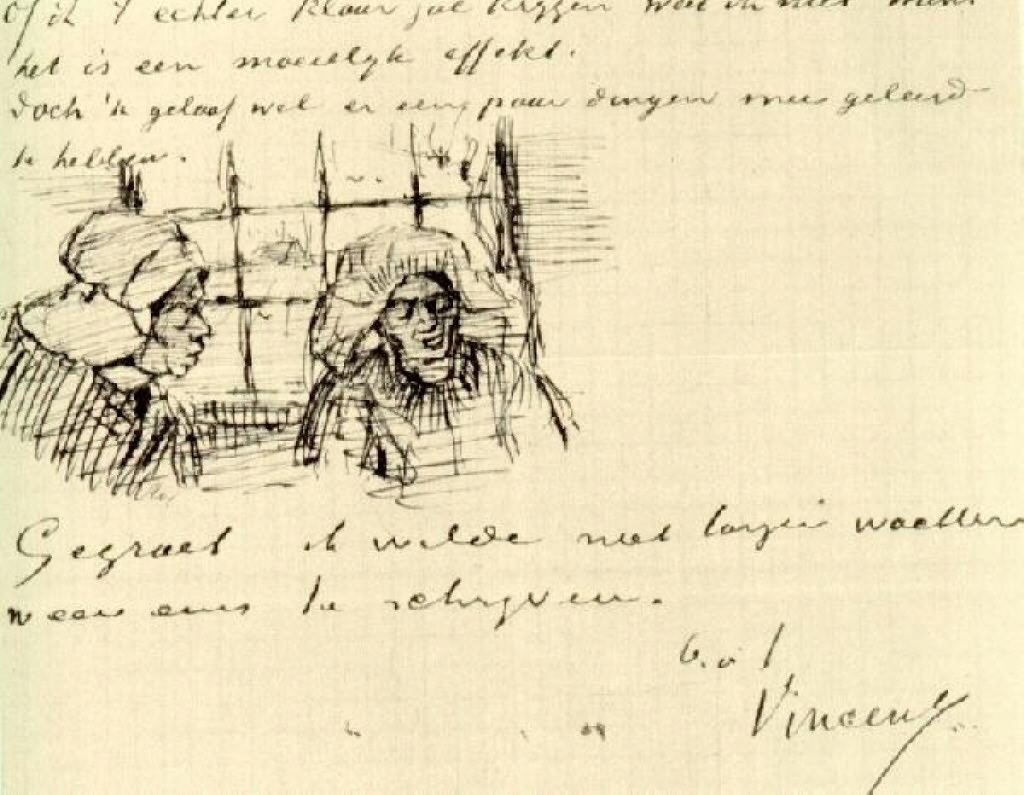 Of ik 't echter klaar zal krijgen weet ik niet want
het is een moeielijk effekt.
Doch 'k geloof wel er een paar dingen mee geleerd
te hebben.
Gegroet ik wilde niet langer wachten
weer eens te schrijven.
b.à t
Vincent